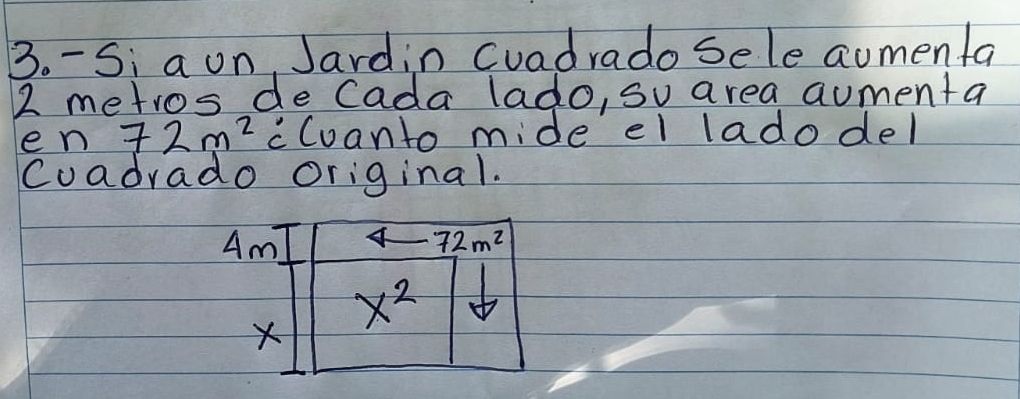 3.-Si a un Jardin Cuadrado Se le aumenta
2 metros de Cada lado, su area aumenta
en 72m² ¿Cuanto mide el lado del
Cuadrado original.
4m 72m²
x²
x